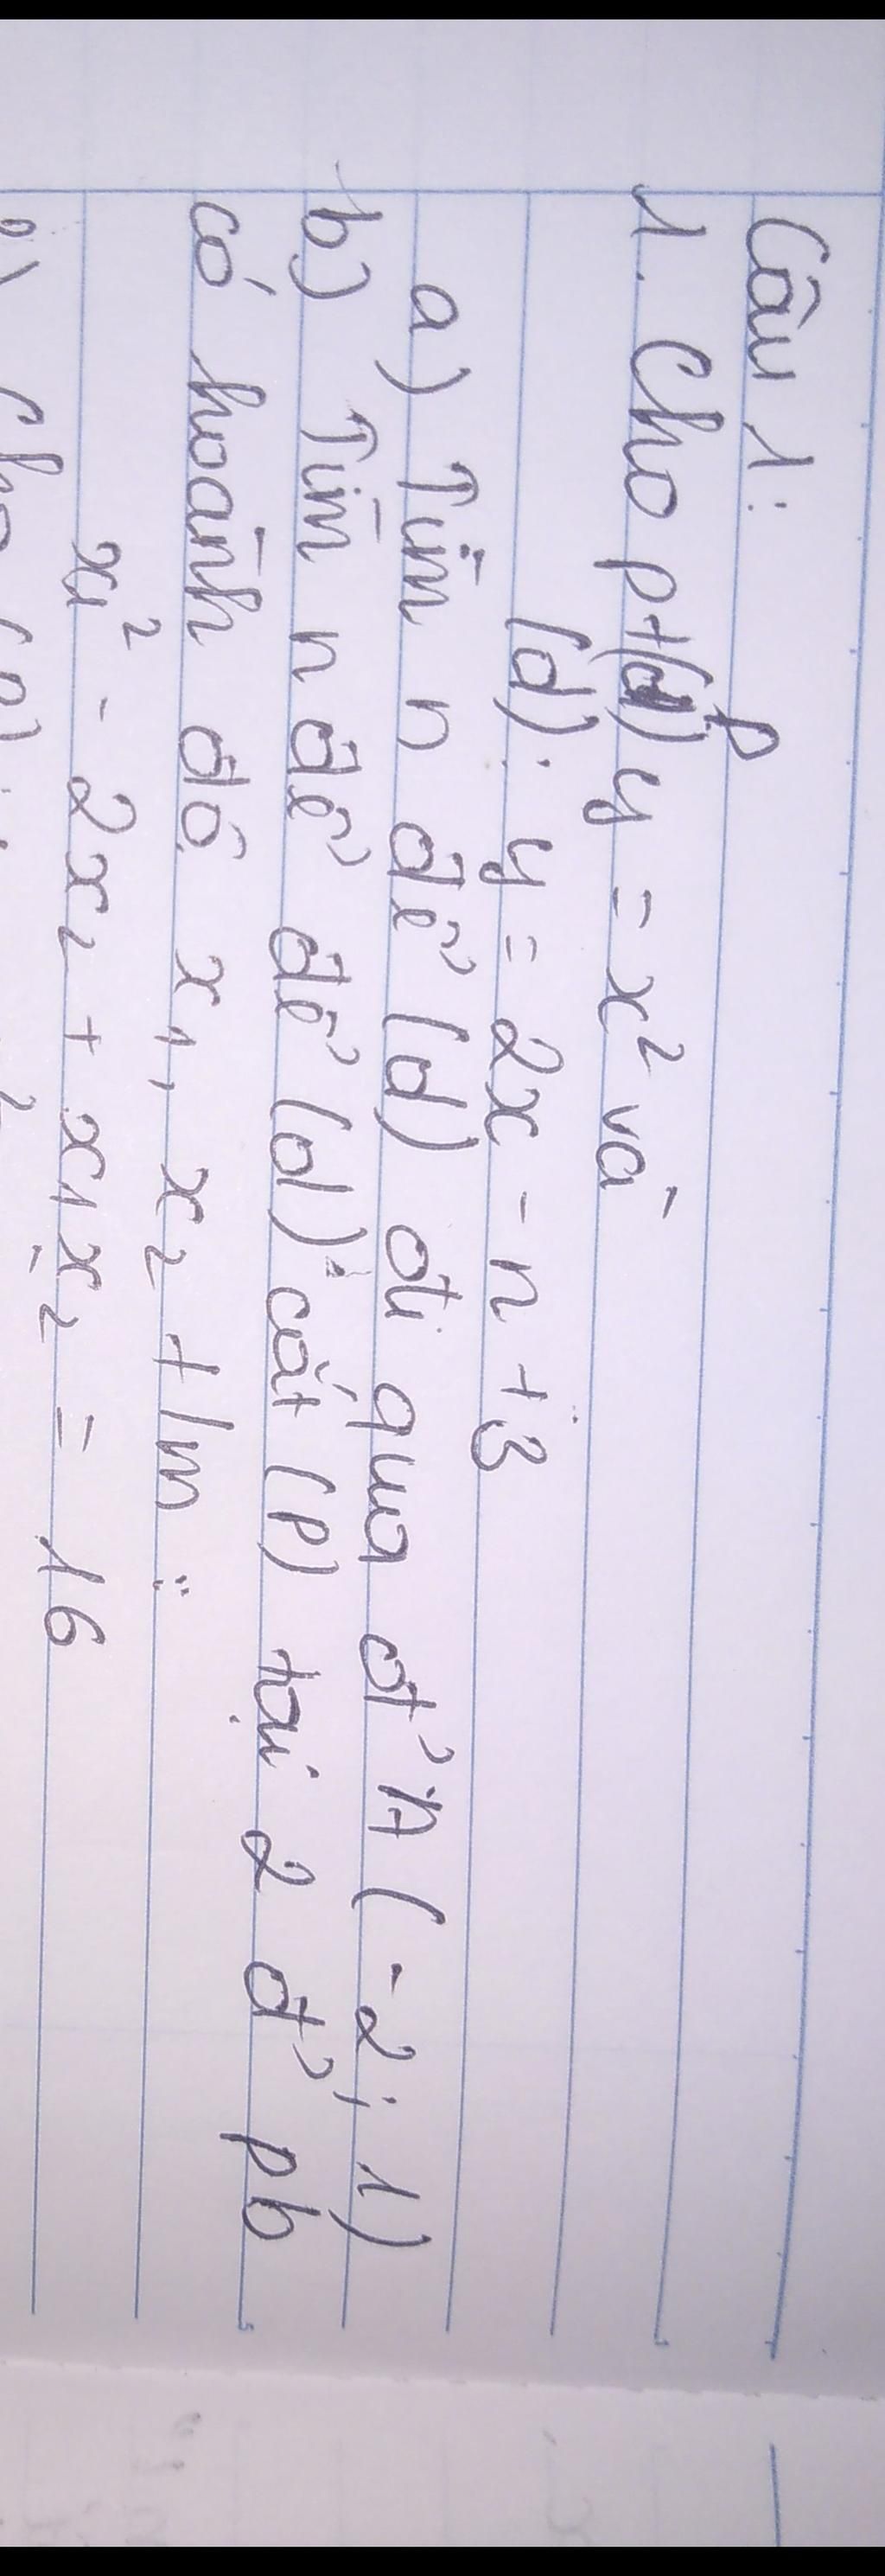 Câu 1:
1. Cho pt (P) y = x² và
(d): y = 2x - n + 3
a) Tìm n để (d) đi qua đ' A (-2; 1)
b) Tìm n để để (d) cắt (P) tại 2 đ' pb
có hoành độ x₁, x₂ t/m:
x₁² - 2x₂ + x₁x₂ = 16